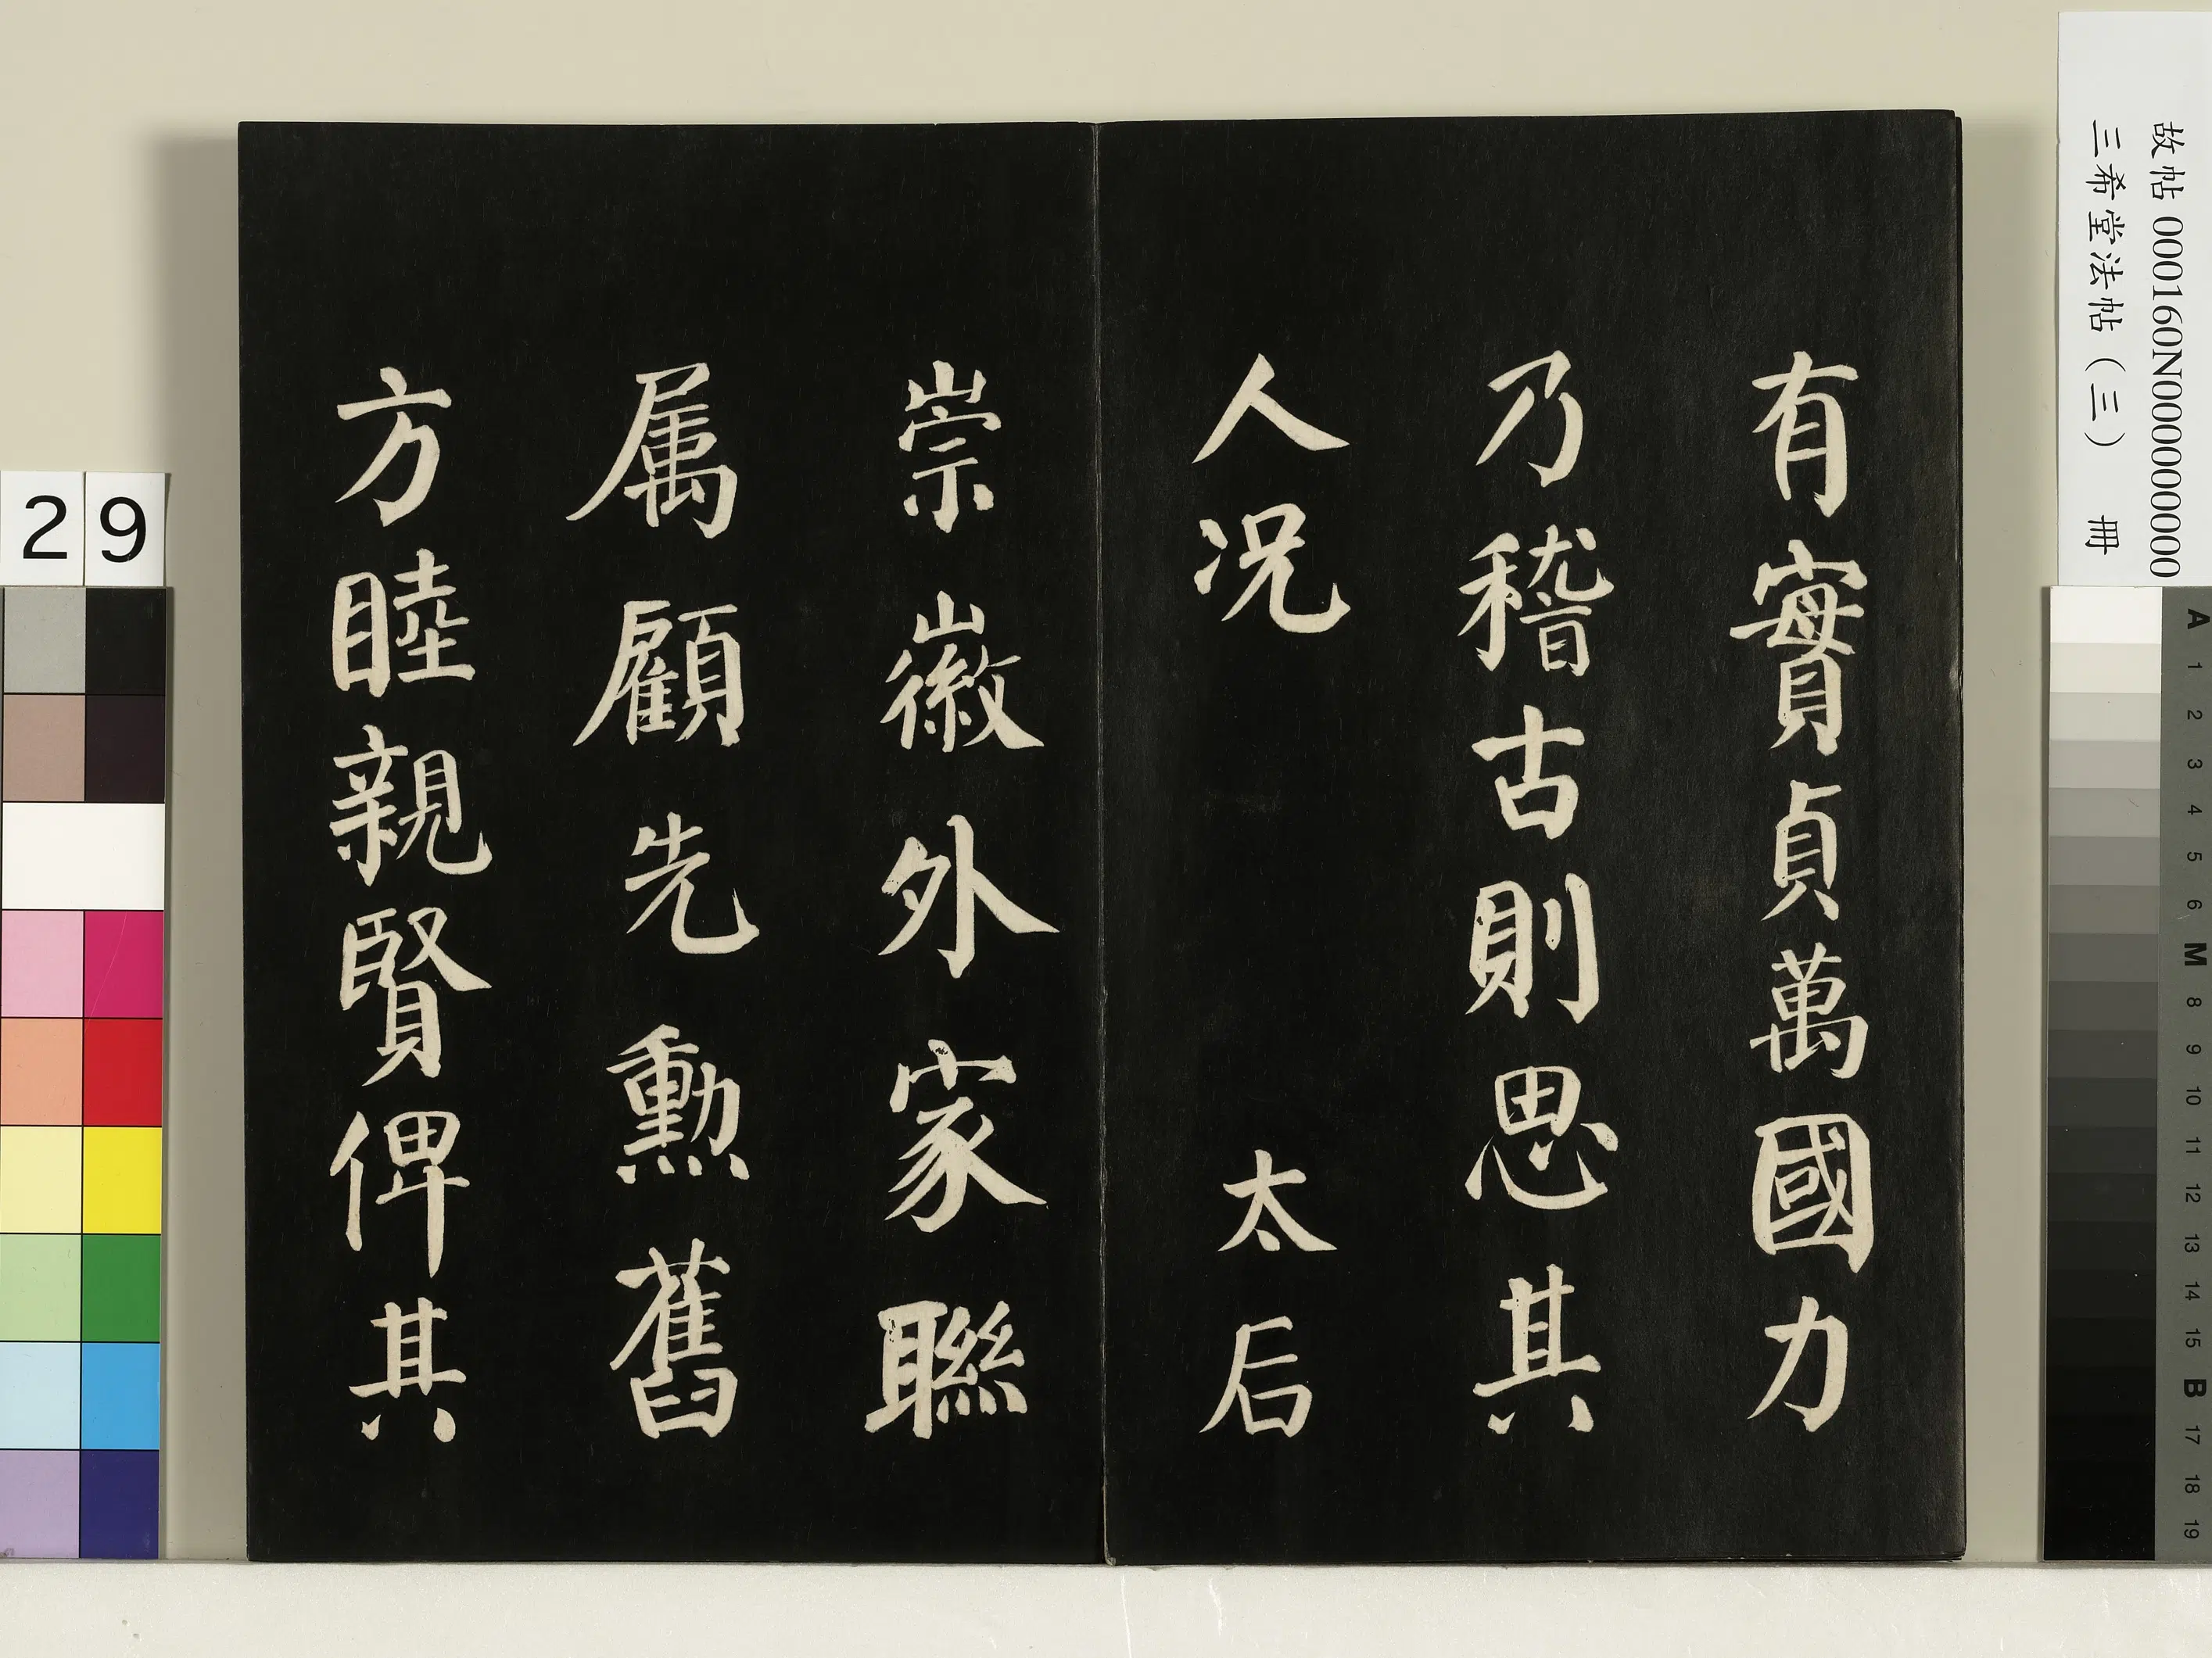 有實貞萬國力
乃稽古則思其
人況 太后
崇徽外家聯
属顧先勲舊
方睦親賢俾其
故帖 000160N000000000
三希堂法帖（三） 冊
29
A
1
2
3
4
5
6
M
8
9
10
11
12
13
14
15
B
17
18
19